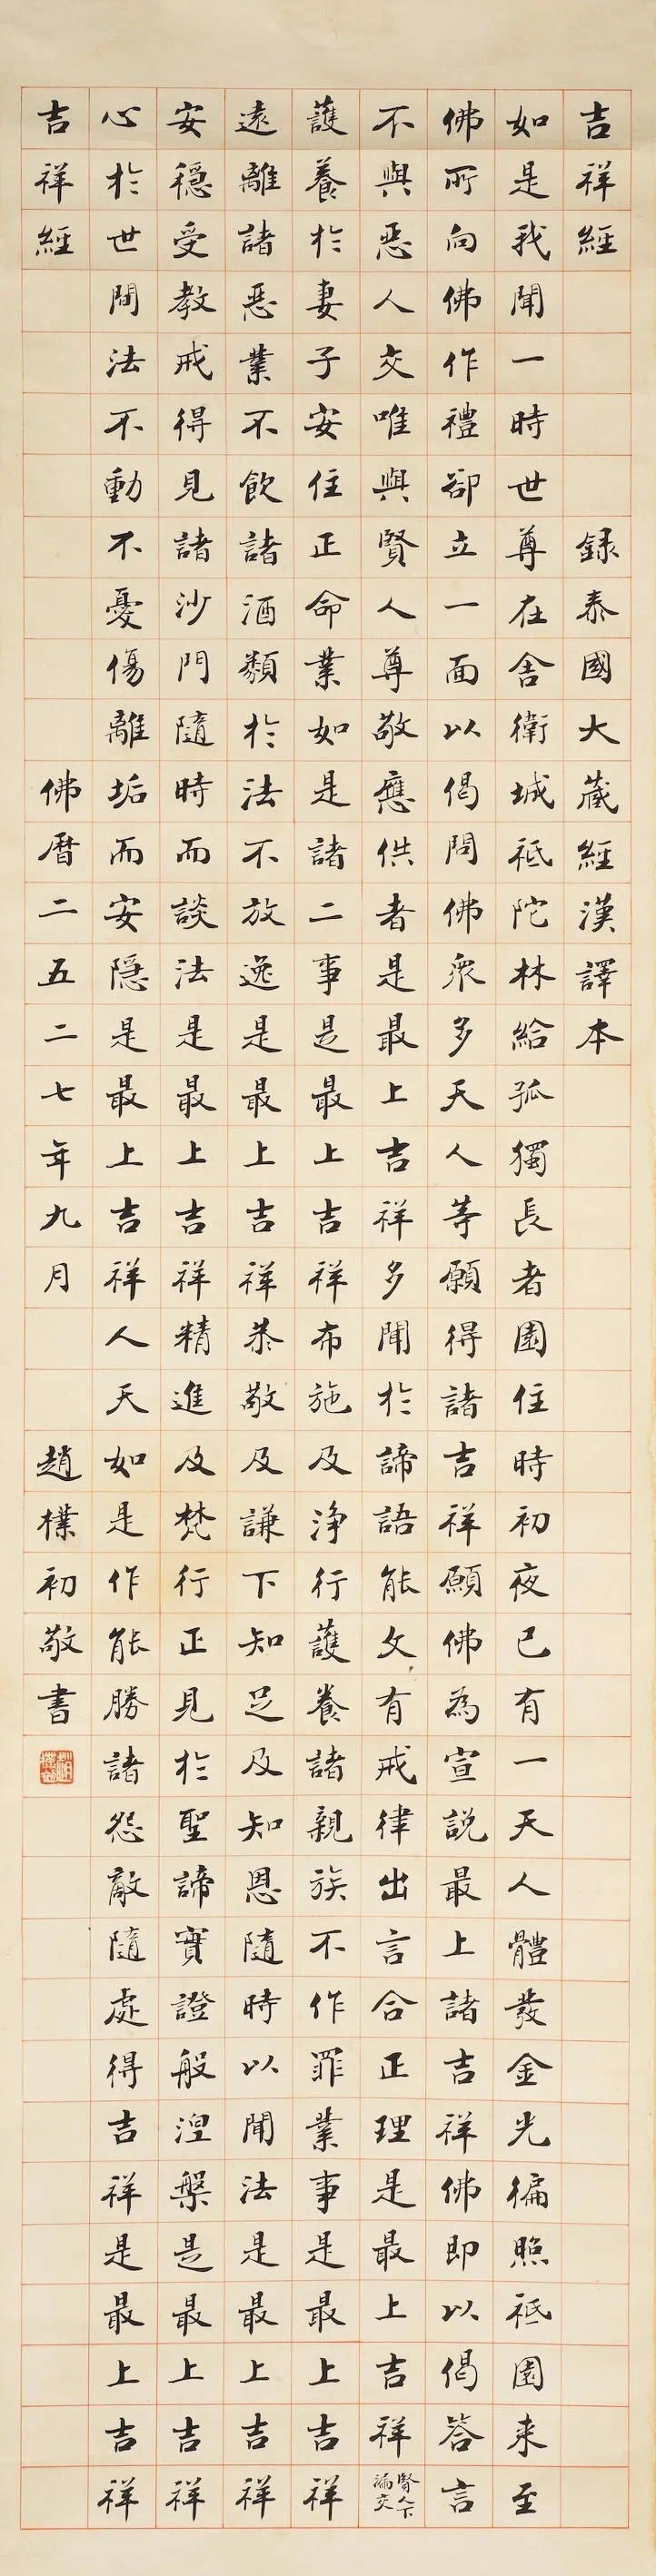 吉祥經 録泰國大藏經漢譯本
如是我聞一時世尊在舍衛城祇陀林給孤獨長者園住時初夜已有一天人體發金光徧照祇園来至
佛所向佛作禮卻立一面以偈問佛眾多天人等願得諸吉祥願佛為宣說最上諸吉祥佛即以偈答言
不與惡人交唯與賢人尊敬應供者是最上吉祥多聞於諦語能文有戒律出言合正理是最上吉祥
賢人下漏交
護養於妻子安住正命業如是諸二事是最上吉祥布施及淨行護養諸親族不作罪業事是最上吉祥
遠離諸惡業不飲諸酒類於法不放逸是最上吉祥恭敬及謙下知足及知恩隨時以聞法是最上吉祥
安穩受教戒得見諸沙門隨時而談法是最上吉祥精進及梵行正見於聖諦實證般涅槃是最上吉祥
心於世間法不動不憂傷離垢而安隱是最上吉祥人天如是作能勝諸怨敵隨處得吉祥是最上吉祥
吉祥經 佛曆二五二七年九月 趙樸初敬書
趙樸初